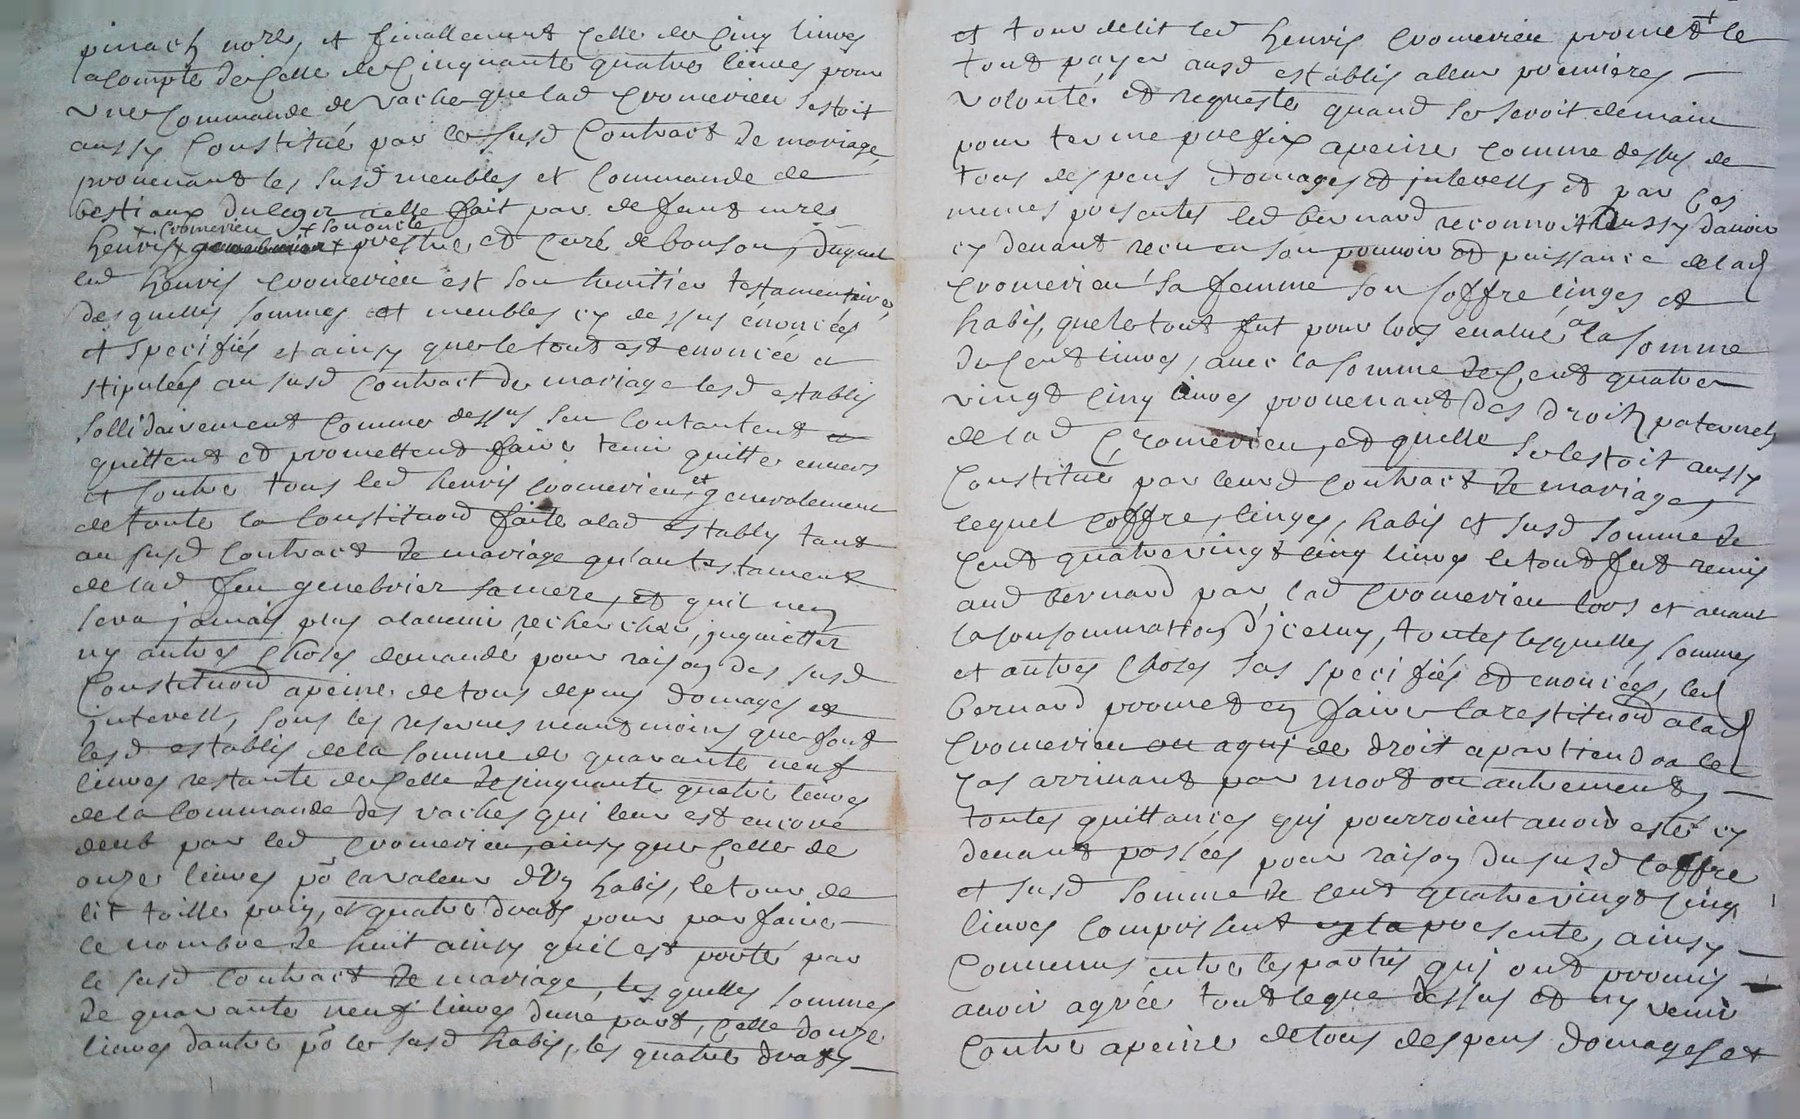 pinach noze, et finallement celle de cinq livres
acompte de celle de cinquante quatre livres pour
une commande de vache que lad cromerieu sestoit
aussy constitué par le susd contract de mariage,
provenant les susd meubles et commande de
bestiaux du legit a elle fait par defeunt mre
henris cromerieu son oncle prestre et curé de bonson, duquel
led henris cromerieu est son heritier testamentaire,
des quelles sommes et meubles cy dessus enoncées
et specifiés et ainsy que le tout est enoncée et
stipulées au susd contract de mariage lesd establis
sollidairement comme dessus sen contantent
quittent et promettent faire tenir quitte envers
et contre tous led henris cromerieu, et generalement
de toute la constituon faite a lad establÿ tant
au susd contract de mariage qu'au testament
de lad feu genebrier sa mere, et quil ney
sera jamais plus a lavenir recherchér, inquietter
ny autres choses demandé pour raison des susd
constituon apeine de tous depens domages et
interetts, sous les reserves neantmoins que font
lesd establis de la somme de quarante neuf
livres restante de celle de cinquante quatre livres
de la commande des vaches qui leur est encore
deub par led cromerieu, ainsy que celle de
onze livres po la valeur d'un habis, le tour de
lit toille, et quatre draps pour parfaire
le nombre de huit ainsy quil est porté par
le susd contract de mariage, les quelles sommes
de quarante neuf livres dune part, celle donze
livres dautre po le susd habis, les quatre draps
et tour de lit led henris cromerieu promet le
tout payer ausd establis a leur premieres
volonté et requeste quand se seroit demain
pour terme prefix apeine comme dessus de
tous despens domages et interetts et par ces
memes presentes led bernard reconnoit aussy davoir
cy devant recu en son pouvoir et puissance de lad
cromerieu sa femme son coffre linges et
habis, que le tout fut pour lors evalué a la somme
du cent livres, avec la somme de cent quatre
vingt cinq livres provenant des droits paternels
de lad cromerieu, et quelle se lestoit aussy
constitué par leurd contract de mariage,
lequel coffre, linges, habis et susd somme de
cent quatre vingt cinq livres le tout fut remis
aud bernard par lad cromerieu lors et avant
la consommation d'iceluy, toutes lesquelles sommes
et autres choses sus specifiés et enoncées, led
bernard promet en faire la restituon a lad
cromerieu ou a qui de droit apartiendra le
cas arrivant par mort ou autrement,
toutes quittances qui pourroient avoir estés cy
devant passées pour raison du susd coffre
et susd somme de cent quatre vingt cinq
livres comprisent presente, ainsy
convenus entre les parties qui ont promis
avoir agrée tout le que dessus et ny venir
contre apeine de tous despens domages et